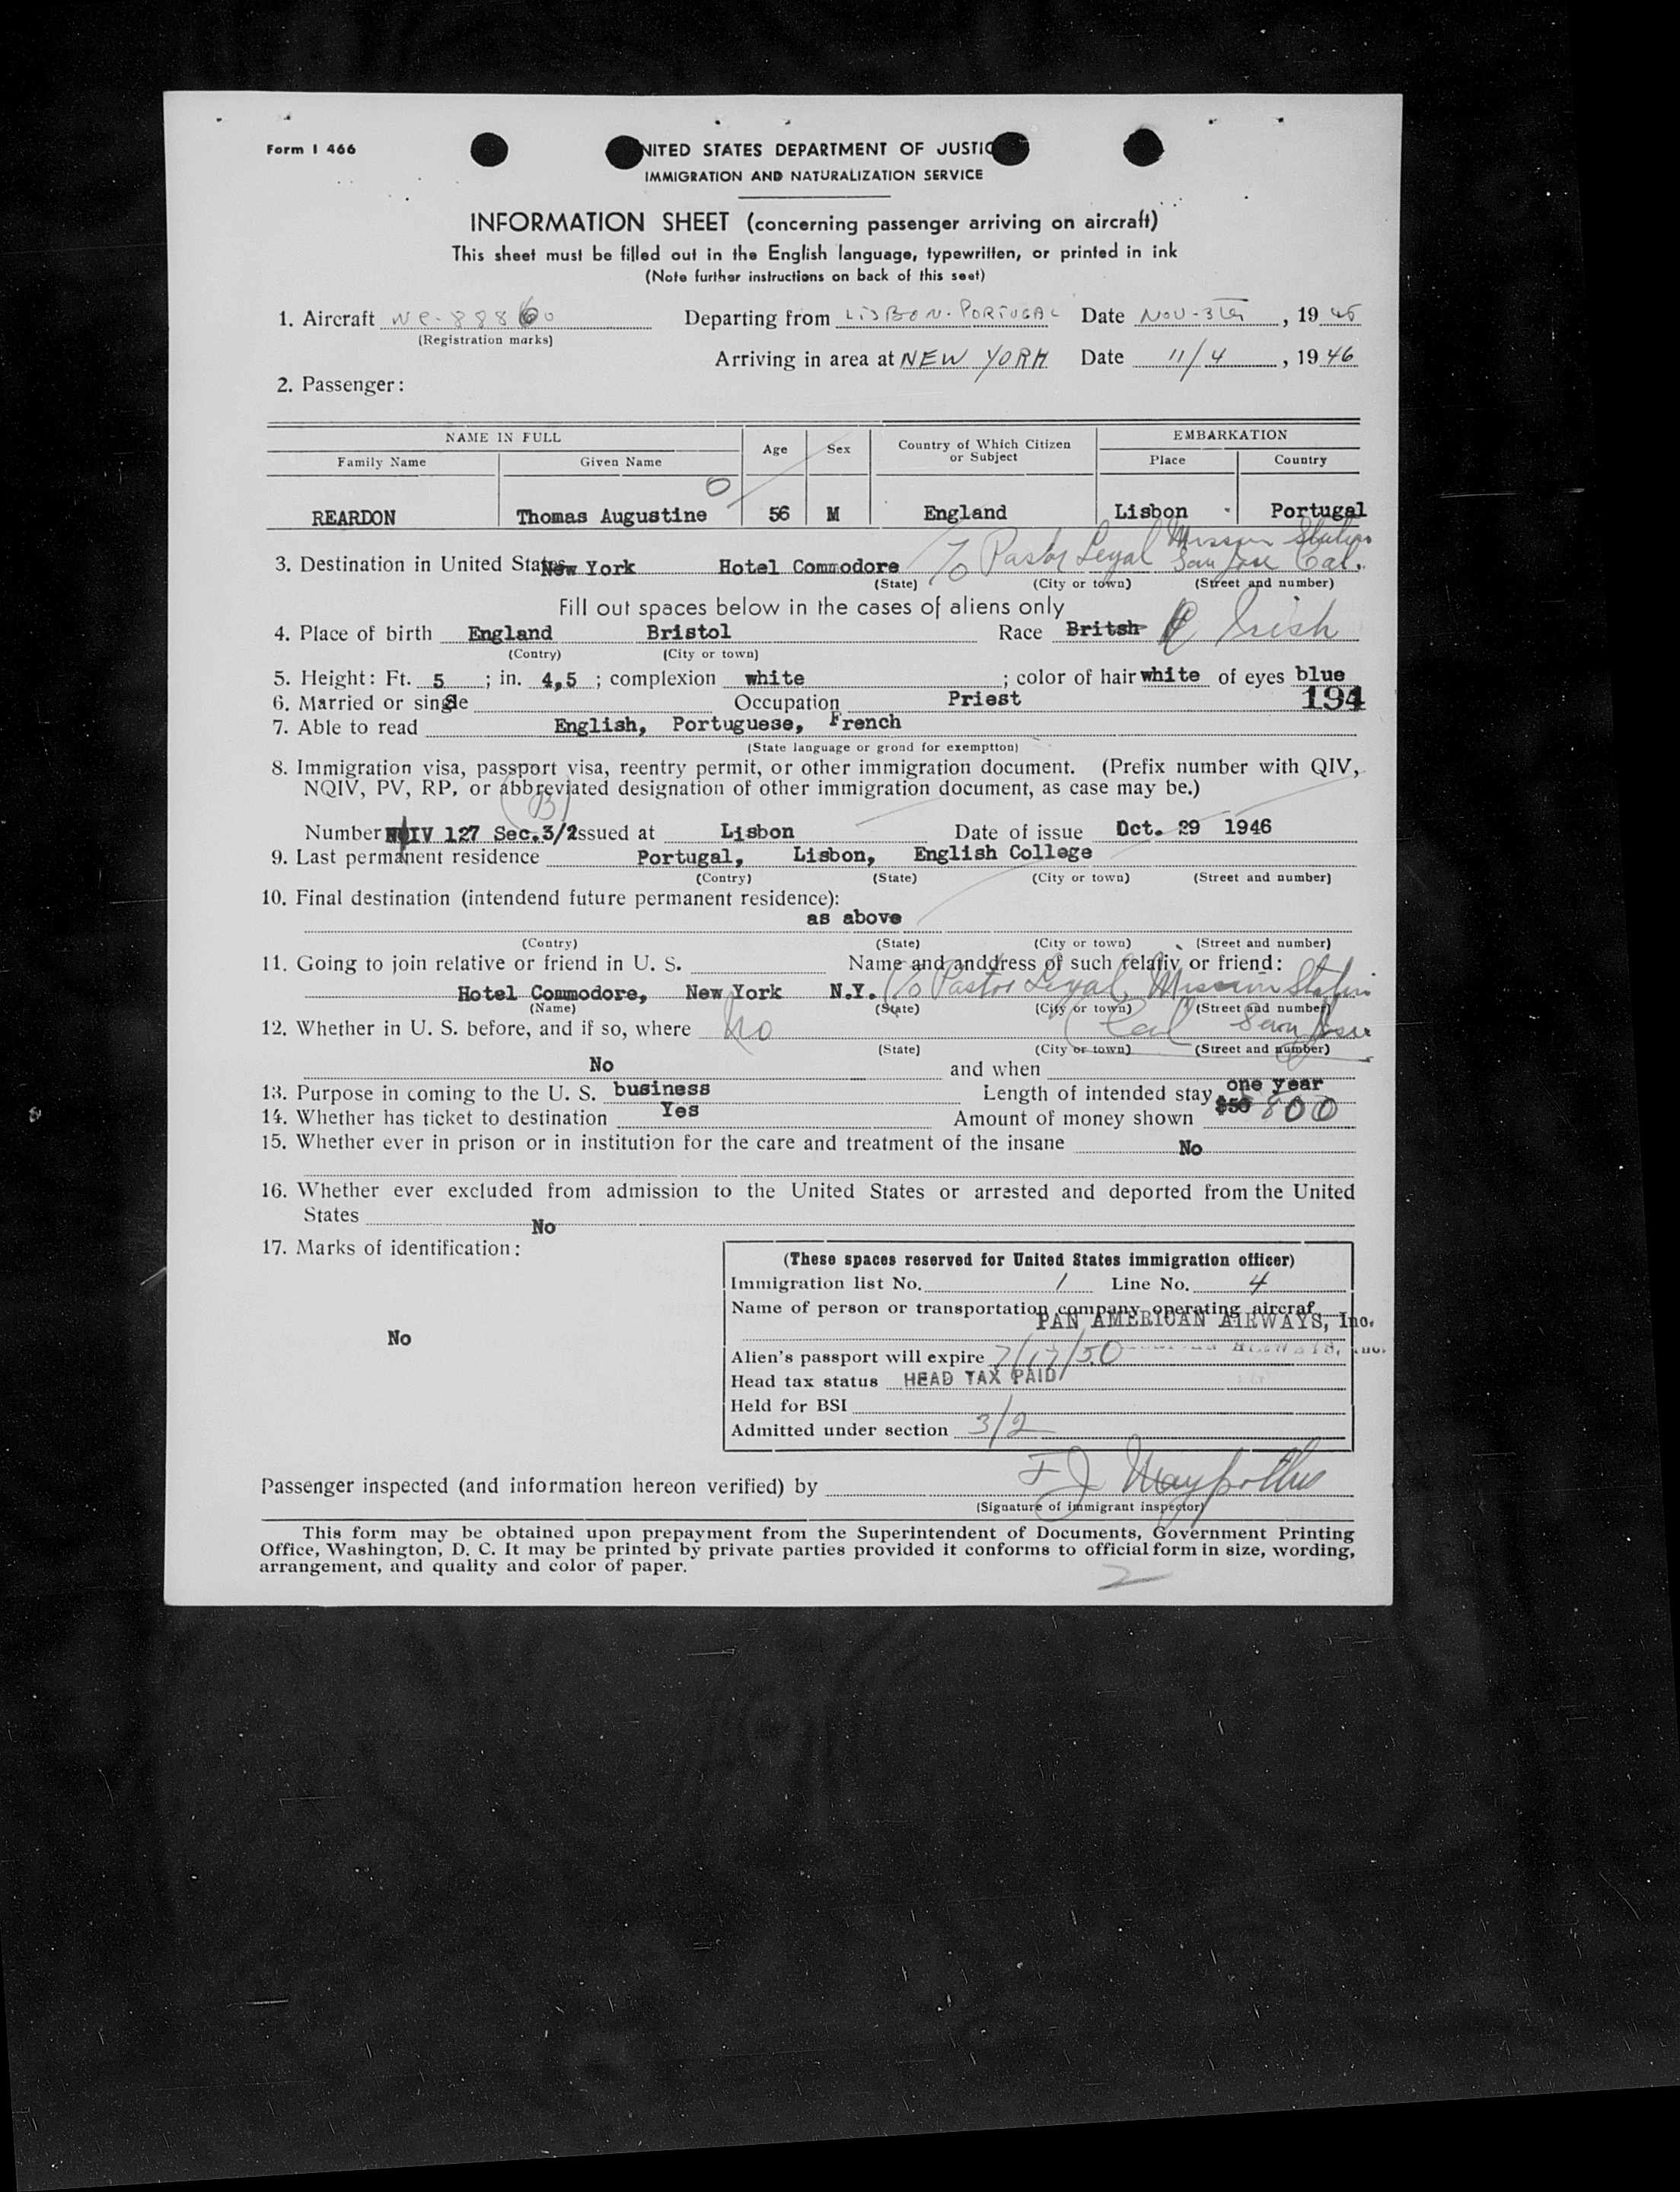 Form I 466
UNITED STATES DEPARTMENT OF JUSTIC
IMMIGRATION AND NATURALIZATION SERVICE
INFORMATION SHEET (concerning passenger arriving on aircraft)
This sheet must be filled out in the English language, typewritten, or printed in ink
(Note further instructions on back of this seet)
1. Aircraft NC-88860 Departing from LISBON-PORTUGAL Date NOV-3, 1946
(Registration marks)
Arriving in area at NEW YORK Date 11/4, 1946
2. Passenger:
NAME IN FULL Age Sex Country of Which Citizen or Subject EMBARKATION
Family Name Given Name Place Country
REARDON Thomas Augustine 56 M England Lisbon Portugal
c/o Pastor Legal Mission Station
3. Destination in United States New York Hotel Commodore San Jose Cal.
(State) (City or town) (Street and number)
Fill out spaces below in the cases of aliens only
4. Place of birth England Bristol Race Britsh Irish
(Contry) (City or town)
5. Height: Ft. 5 ; in. 4,5 ; complexion white ; color of hair white of eyes blue
6. Married or single Occupation Priest 194
7. Able to read English, Portuguese, French
(State language or grond for exemptton)
8. Immigration visa, passport visa, reentry permit, or other immigration document. (Prefix number with QIV,
NQIV, PV, RP, or abbreviated designation of other immigration document, as case may be.)
(B)
Number NQIV 127 Sec.3/2 issued at Lisbon Date of issue Oct. 29 1946
9. Last permanent residence Portugal, Lisbon, English College
(Contry) (State) (City or town) (Street and number)
10. Final destination (intendend future permanent residence):
as above
(Contry) (State) (City or town) (Street and number)
11. Going to join relative or friend in U. S. Name and anddress of such relativ or friend:
Hotel Commodore, New York N.Y. c/o Pastor Legal, Mission Station
(Name) (State) (City or town) (Street and number)
12. Whether in U. S. before, and if so, where No Cal San Jose
(State) (City or town) (Street and number)
No and when
13. Purpose in coming to the U. S. business Length of intended stay one year
14. Whether has ticket to destination Yes Amount of money shown $50 800
15. Whether ever in prison or in institution for the care and treatment of the insane No
16. Whether ever excluded from admission to the United States or arrested and deported from the United
States No
17. Marks of identification:
No
(These spaces reserved for United States immigration officer)
Immigration list No. 1 Line No. 4
Name of person or transportation company operating aircraf
PAN AMERICAN AIRWAYS, Inc.
Alien's passport will expire 7/17/50
Head tax status HEAD TAX PAID
Held for BSI
Admitted under section 3/2
Passenger inspected (and information hereon verified) by
(Signature of immigrant inspector)
This form may be obtained upon prepayment from the Superintendent of Documents, Government Printing
Office, Washington, D. C. It may be printed by private parties provided it conforms to official form in size, wording,
arrangement, and quality and color of paper.
2